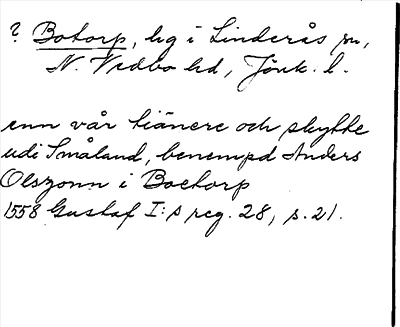 ? Botorp, hg i Linderås sn,
N. Vedbo hd, Jönk. l.
enn vår tiänere och skytthe
udi Småland, benempd Anders
Olszonn i Boetorp
1558 Gustaf I:s reg. 28, s. 21.